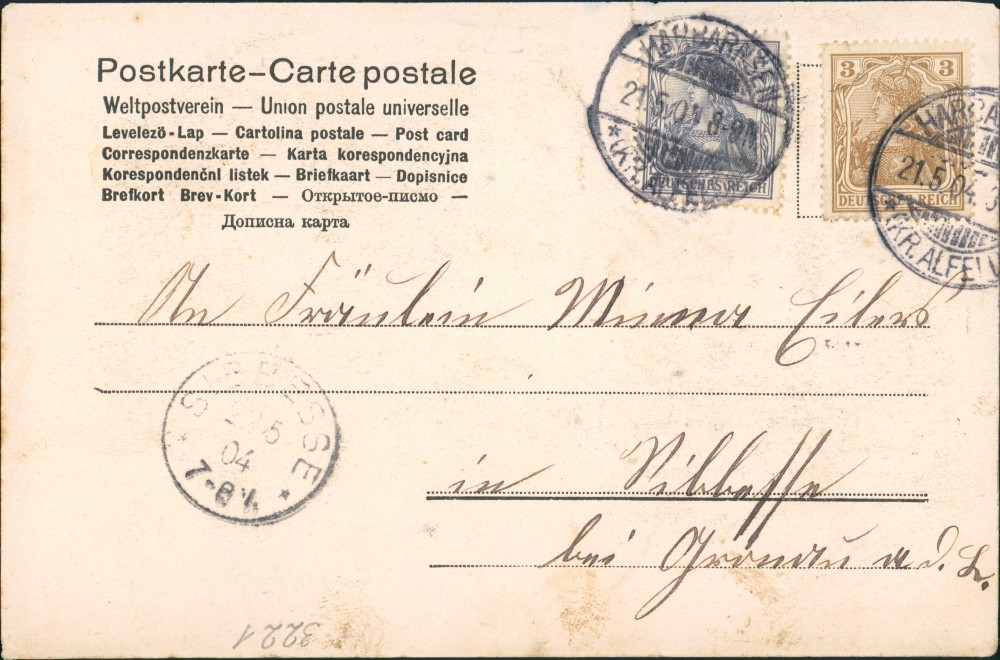 Postkarte–Carte postale
Weltpostverein — Union postale universelle
Levelező-Lap — Cartolina postale — Post card
Correspondenzkarte — Karta korespondencyjna
Korespondenční listek — Briefkaart — Dopisnice
Brefkort Brev-Kort — Открытое-писмо —
Дописна карта
21.5.04 8-9N
*(KR.ALFE
DEUTSCHES REICH
3 3
DEUTSCHES REICH
HARBA
21.5.04.
(KR.ALFELD
An Fräulein Minna Eilers
SIBBESSE
5
04
7-8V.
in Sibbesse
bei Gronau a. d. L.
3221